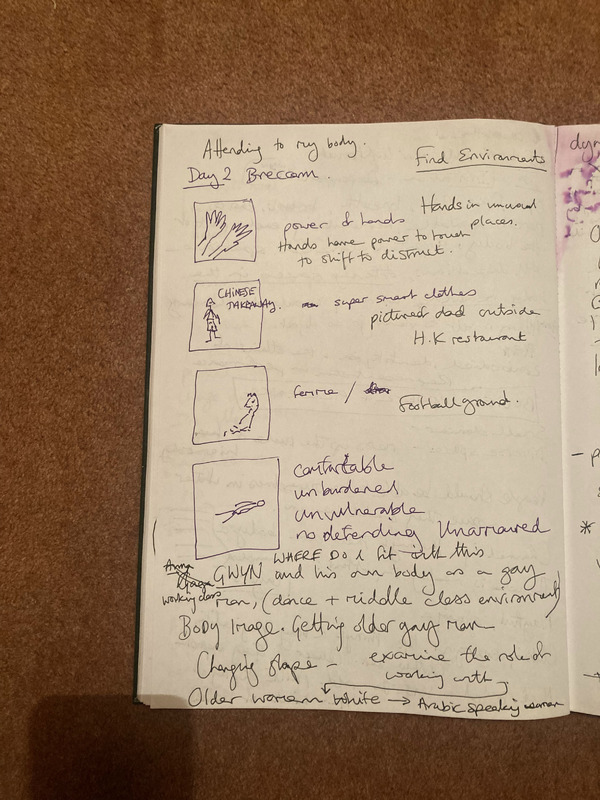 Attending to my body.
Find Environments
Day 2 Breccam.
Hands in unusual
places.
power of hands
Hands have power to touch
to shift to distract.
CHINESE
TAKEAWAY.
super smart clothes
pictured dad outside
H.K restaurant
femme /
Football ground.
comfortable
unburdened
unvulnerable
no defending Unarmoured
WHERE DO I fit with this
GWYN and his own body as a gay
working class man, (dance + middle class environment)
Body Image. Getting older gay man
Changing shape - examine the role of
working with
Older women white → Arabic speaking women
dyn
- p
*